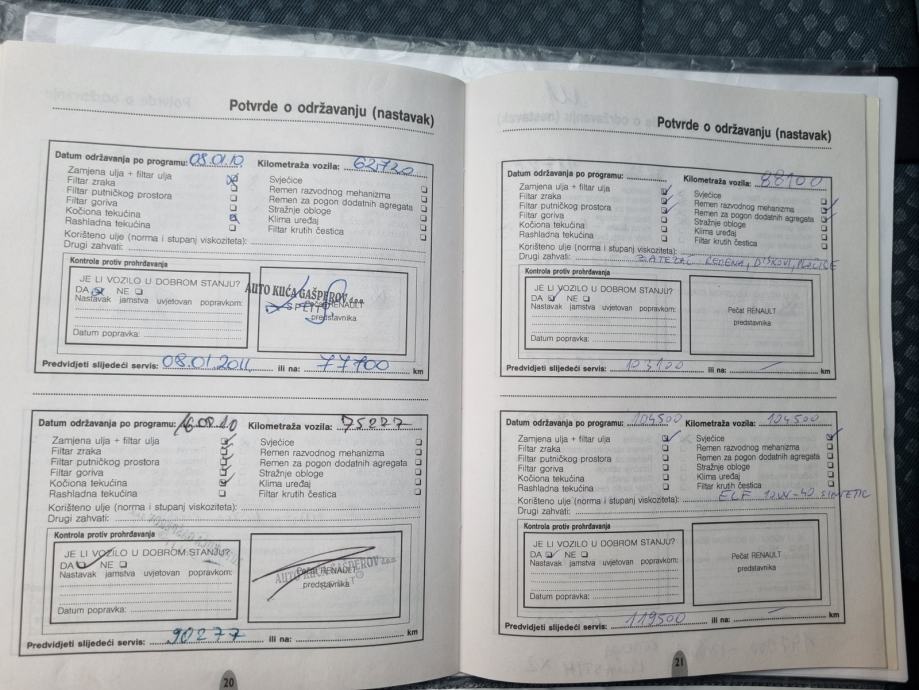 Potvrde o održavanju (nastavak)
Datum održavanja po programu: 08.01.10. Kilometraža vozila: 62720
Zamjena ulja + filtar ulja
Filtar zraka
Filtar putničkog prostora
Filtar goriva
Kočiona tekućina
Rashladna tekućina
Svjećice
Remen razvodnog mehanizma
Remen za pogon dodatnih agregata
Stražnje obloge
Klima uređaj
Filtar krutih čestica
Korišteno ulje (norma i stupanj viskoziteta):
Drugi zahvati:
Kontrola protiv prohrđavanja
JE LI VOZILO U DOBROM STANJU?
DA NE
Nastavak jamstva uvjetovan popravkom:
Datum popravka:
AUTO KUĆA GAŠPEROV d.o.o.
SPLIT
Pečat RENAULT
predstavnika
Predvidjeti slijedeći servis: 08.01.2011. ili na: 77700 km
Datum održavanja po programu: 16.08.10 Kilometraža vozila: 75277
Zamjena ulja + filtar ulja
Filtar zraka
Filtar putničkog prostora
Filtar goriva
Kočiona tekućina
Rashladna tekućina
Svjećice
Remen razvodnog mehanizma
Remen za pogon dodatnih agregata
Stražnje obloge
Klima uređaj
Filtar krutih čestica
Korišteno ulje (norma i stupanj viskoziteta):
Drugi zahvati:
Kontrola protiv prohrđavanja
JE LI VOZILO U DOBROM STANJU?
DA NE
Nastavak jamstva uvjetovan popravkom:
Datum popravka:
AUTO KUĆA GAŠPEROV d.o.o.
Pečat RENAULT
predstavnika
Predvidjeti slijedeći servis: 90277 ili na: km
20
Potvrde o održavanju (nastavak)
Datum održavanja po programu: Kilometraža vozila: 88100
Zamjena ulja + filtar ulja
Filtar zraka
Filtar putničkog prostora
Filtar goriva
Kočiona tekućina
Rashladna tekućina
Svjećice
Remen razvodnog mehanizma
Remen za pogon dodatnih agregata
Stražnje obloge
Klima uređaj
Filtar krutih čestica
Korišteno ulje (norma i stupanj viskoziteta):
Drugi zahvati: ZATEZAČ REMENA, DISKOVI, PLOČICE
Kontrola protiv prohrđavanja
JE LI VOZILO U DOBROM STANJU?
DA NE
Nastavak jamstva uvjetovan popravkom:
Datum popravka:
Pečat RENAULT
predstavnika
Predvidjeti slijedeći servis: 103100 ili na: km
Datum održavanja po programu: 104500 Kilometraža vozila: 104500
Zamjena ulja + filtar ulja
Filtar zraka
Filtar putničkog prostora
Filtar goriva
Kočiona tekućina
Rashladna tekućina
Svjećice
Remen razvodnog mehanizma
Remen za pogon dodatnih agregata
Stražnje obloge
Klima uređaj
Filtar krutih čestica
Korišteno ulje (norma i stupanj viskoziteta): ELF 10W-40 SINTETIC
Drugi zahvati:
Kontrola protiv prohrđavanja
JE LI VOZILO U DOBROM STANJU?
DA NE
Nastavak jamstva uvjetovan popravkom:
Datum popravka:
Pečat RENAULT
predstavnika
Predvidjeti slijedeći servis: 119500 ili na: km
21